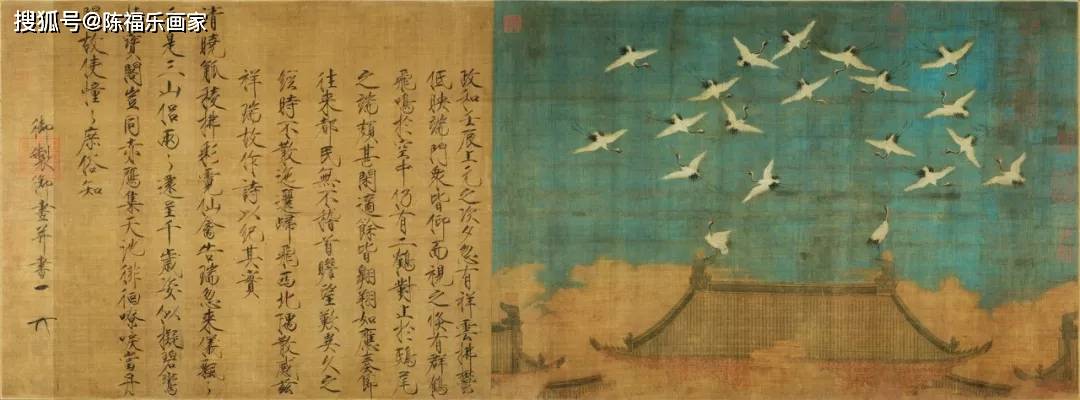 搜狐号@陈福乐画家
政和壬辰上元之次夕忽有祥雲拂鬱
低映端門眾皆仰而視之倏有群鶴
飛鳴於空中仍有二鶴對止於鴟尾
之端頗甚閑適餘皆翱翔如應奏節
往來都民無不稽首瞻望歎異久之
經時不散迤邐歸飛西北隅散感茲
祥瑞故作詩以紀其實
清曉觚稜拂彩霓仙禽告瑞忽來儀飄〻
元是三山侶兩〻還呈千歲姿似擬碧鸞
棲寶閣豈同赤鴈集天池徘徊嘹唳當丹
闕故使憧〻庶俗知
御製御畫并書